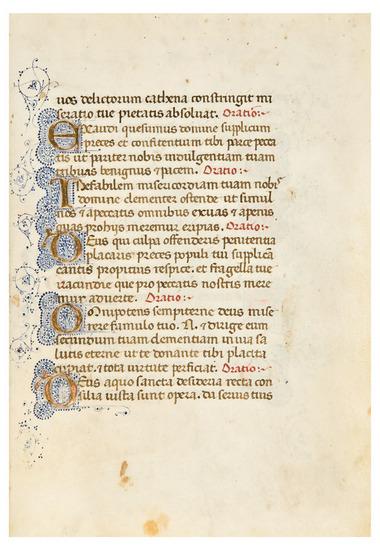 uos delictorum cathena constringit mi
seratio tue pietatis absoluat. Oratio:-
Exaudi quesumus domine supplicum
preces et confitentium tibi parce pecca
tis ut pariter nobis indulgentiam tuam
tribuas benignus et pacem. Oratio:-
Inefabilem misericordiam tuam nobis
domine clementer ostende ut simul
nos & apeccatis omnibus exuas & apenis
quas pro hijs meremur eripias. Oratio:-
Deus qui culpa offenderis penitentia
placaris preces populi tui supplicā
cantis propitius respice. et fragella tue
iracundie que pro peccatis nostris mere
mur aduerte. Oratio:-
Omnipotens sempiterne deus mise
rere famulo tuo .N. & dirige eum
secundum tuam clementiam in uia sa
lutis eterne ut te donante tibi placita
cupiat. & tota uirtute perficiat. Oratio:-
Deus a quo sancta desideria recta con
silia iusta sunt opera. da seruis tuis